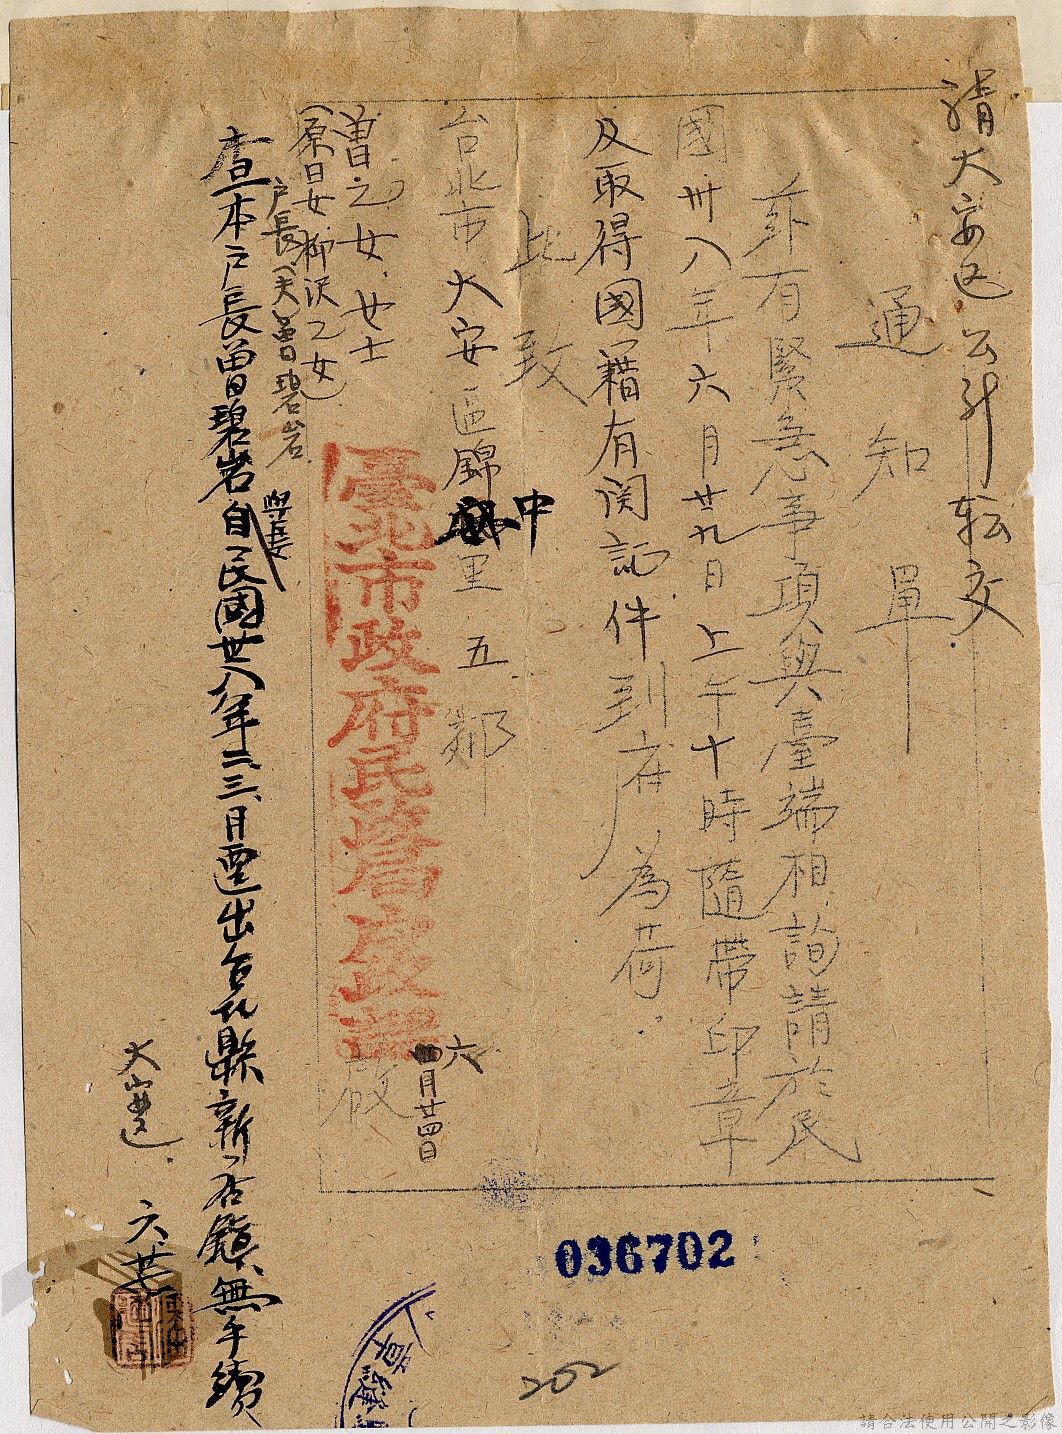 請大安区公所転交
通知單
茲有緊急事項與臺端相詢請於民
國卅八年六月廿九日上午十時隨帶印章
及取得國籍有関記件到府為荷
此致
台北市大安區錦中里五鄰
曽乙女女士
(原日女柳沢乙女)
戸長(夫)曽碧岩
臺北市政府民政局戶政課 啟
六月廿四日
查本戸長曽碧岩自民國廿八年二、三月遷出台北縣新店鎮無手續
與長女
六、廿
036702
202
請合法使用公開之影像